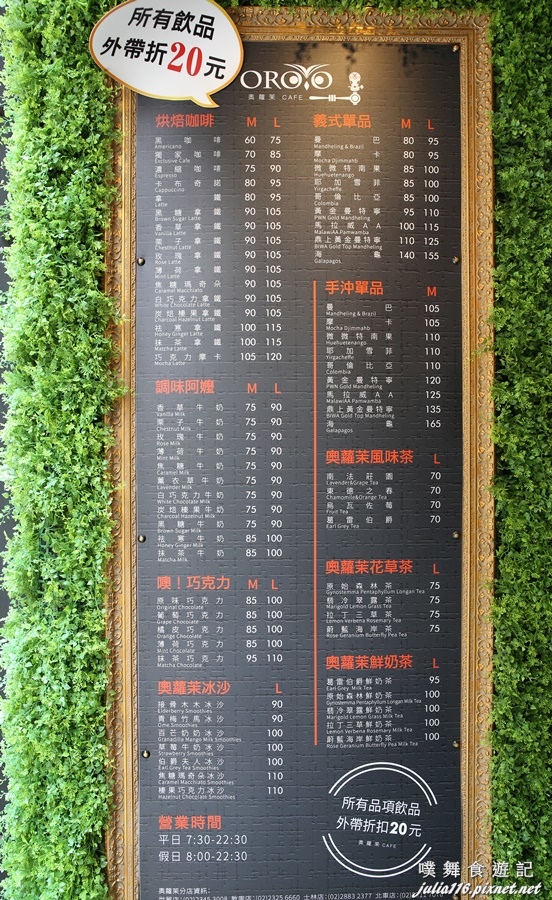 所有飲品
外帶折20元
OROYO
奧蘿茉 CAFE
烘焙咖啡 M L
黑咖啡 60 75
Americano
獨家咖啡 70 85
Exclusive Cafe
濃縮咖啡 75 90
Espresso
卡布奇諾 80 95
Cappuccino
拿鐵 80 95
Latte
黑糖拿鐵 90 105
Brown Sugar Latte
香草拿鐵 90 105
Vanilla Latte
栗子拿鐵 90 105
Chestnut Latte
玫瑰拿鐵 90 105
Rose Latte
薄荷拿鐵 90 105
Mint Latte
焦糖瑪奇朵 90 105
Caramel Macchiato
白巧克力拿鐵 90 105
White Chocolate Latte
炭焙榛果拿鐵 90 105
Charcoal Hazelnut Latte
祛寒拿鐵 100 115
Honey Ginger Latte
抹茶拿鐵 100 115
Matcha Latte
巧克力摩卡 105 120
Mocha Latte
調味阿嬤 M L
香草牛奶 75 90
Vanilla Milk
栗子牛奶 75 90
Chestnut Milk
玫瑰牛奶 75 90
Rose Milk
薄荷牛奶 75 90
Mint Milk
焦糖牛奶 75 90
Caramel Milk
薰衣草牛奶 75 90
Lavender Milk
白巧克力牛奶 75 90
White Chocolate Milk
炭焙榛果牛奶 75 90
Charcoal Hazelnut Milk
黑糖牛奶 75 90
Brown Sugar Milk
祛寒牛奶 85 100
Honey Ginger Milk
抹茶牛奶 85 100
Matcha Milk
噢！巧克力 M L
原味巧克力 85 100
Original Chocolate
葡萄巧克力 85 100
Grape Chocolate
橘皮巧克力 85 100
Orange Chocolate
薄荷巧克力 85 100
Mint Chocolate
抹茶巧克力 95 110
Matcha Chocolate
奧蘿茉冰沙 L
接骨木木冰沙 90
Elderberry Smoothies
青梅竹馬冰沙 90
Ome Smoothies
百芒奶奶冰沙 100
Granadilla Mango Milk Smoothies
草莓牛奶冰沙 100
Strawberry Smoothies
伯爵夫人冰沙 100
Earl Grey Tea Smoothies
焦糖瑪奇朵冰沙 110
Caramel Macchiato Smoothies
榛果巧克力冰沙 110
Hazelnut Chocolate Smoothies
營業時間
平日 7:30-22:30
假日 8:00-22:30
奧蘿茉分店資訊:
義式單品 M L
曼巴 80 95
Mandheling & Brazil
摩卡 80 95
Mocha Djimmahb
微微特南果 85 100
Huehuetenango
耶加雪菲 85 100
Yirgacheffe
哥倫比亞 85 100
Colombia
黃金曼特寧 95 110
PWN Gold Mandheling
馬拉威AA 100 115
MalawiAA Pamwamba
鼎上黃金曼特寧 110 125
BIWA Gold Top Mandheling
海龜 140 155
Galapagos
手沖單品 M
曼巴 105
Mandheling & Brazil
摩卡 105
Mocha Djimmahb
微微特南果 110
Huehuetenango
耶加雪菲 110
Yirgacheffe
哥倫比亞 110
Colombia
黃金曼特寧 120
PWN Gold Mandheling
馬拉威AA 125
MalawiAA Pamwamba
鼎上黃金曼特寧 135
BIWA Gold Top Mandheling
海龜 165
Galapagos
奧蘿茉風味茶 L
南法莊園 70
Lavender&Grape Tea
東德之春 70
Chamomile&Orange Tea
烏瓦佐莓 70
Fruit Tea
葛雷伯爵 70
Earl Grey Tea
奧蘿茉花草茶 L
原始森林茶 75
Gynostemma Pentaphyllum Longan Tea
翡冷翠露茶 75
Marigold Lemon Grass Tea
拉丁三草茶 75
Lemon-Verbena Rosemary Tea
蔚藍海岸茶 75
Rose Geranium Butterfly Pea Tea
奧蘿茉鮮奶茶 L
葛雷伯爵鮮奶茶 95
Earl Grey Milk Tea
原始森林鮮奶茶 100
Gynostemma Pentaphyllum Longan Milk Tea
翡冷翠露鮮奶茶 100
Marigold Lemon Grass Milk Tea
拉丁三草鮮奶茶 100
Lemon Verbena Rosemary Milk Tea
蔚藍海岸鮮奶茶 100
Rose Geranium Butterfly Pea Milk Tea
所有品項飲品
外帶折扣20元
奧蘿茉 CAFE
噗舞食遊記
julia116.pixnet.net